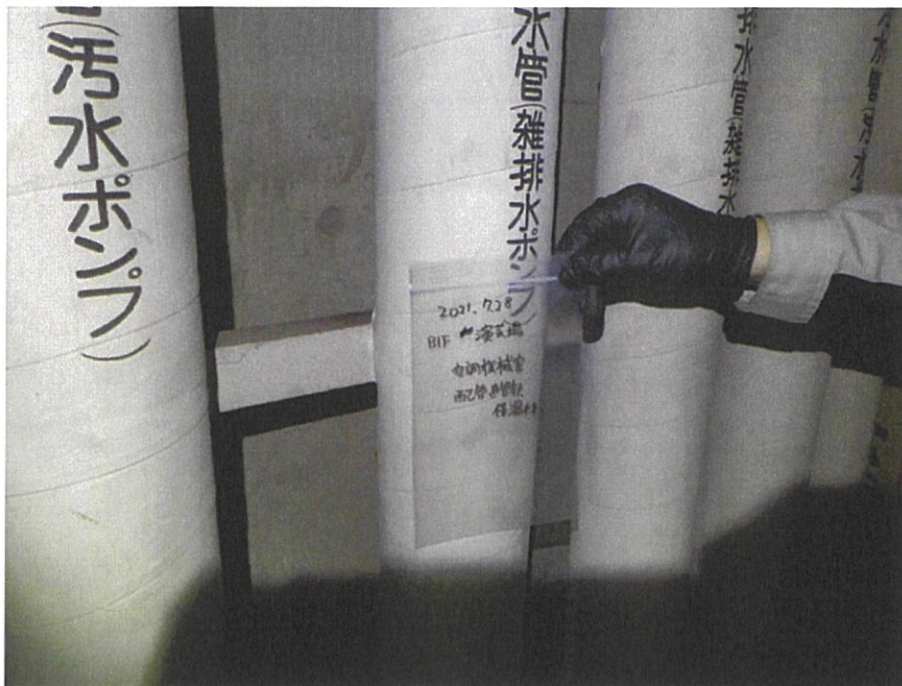 (汚水ポンプ)
水管(雑排水ポンプ)
排水管(雑排水
水管(汚水
2021.7.28
B1F
空調機械室
配管
保温材